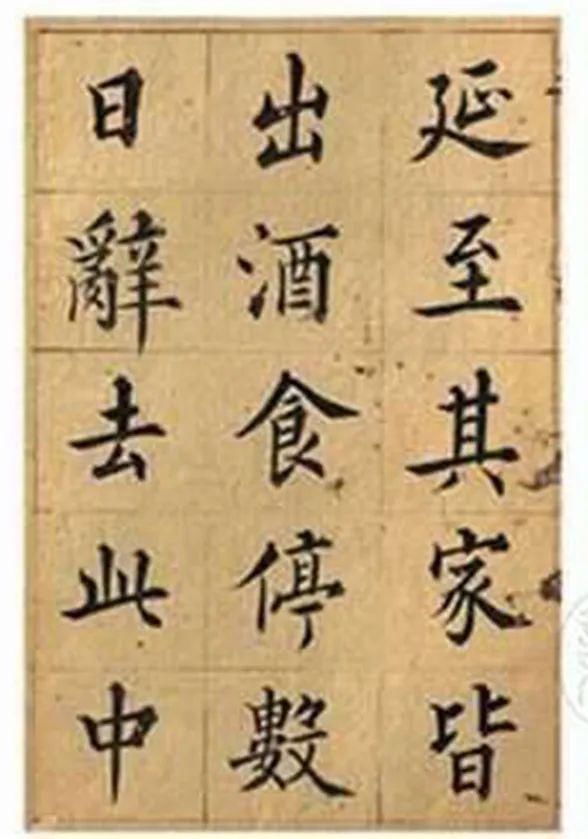 延至其家皆
出酒食停數
日辭去此中